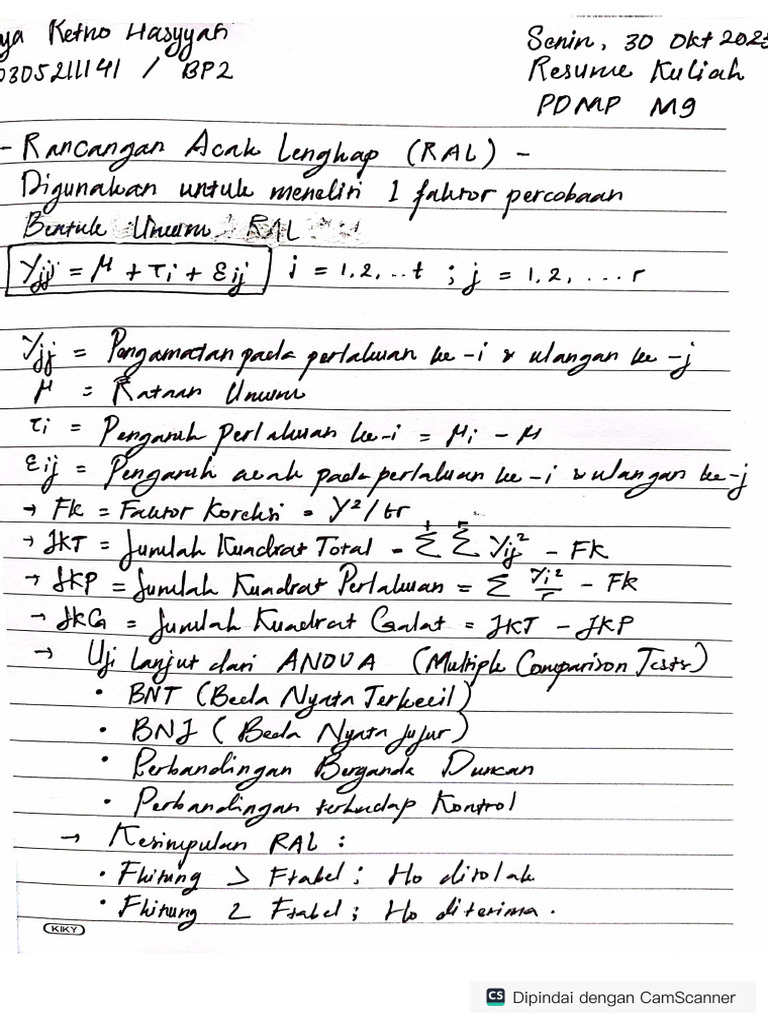 ya Retno Hasyyah
0305211141 / BP2
Senin, 30 Okt 2023
Resume Kuliah
PDMP M9
- Rancangan Acak Lengkap (RAL) -
Digunakan untuk meneliti 1 faktor percobaan
Bentuk Umum RAL
Yij = μ + τi + εij i = 1,2,..t ; j = 1,2,....r
Yij = Pengamatan pada perlakuan ke-i & ulangan ke-j
μ = Rataan Umum
τi = Pengaruh perlakuan ke-i = μi - μ
εij = Pengaruh acak pada perlakuan ke-i & ulangan ke-j
→ Fk = Faktor Koreksi = Y²/tr
→ JKT = Jumlah Kuadrat Total = Σ^t Σ^r Yij² - FK
→ JKP = Jumlah Kuadrat Perlakuan = Σ Yi²/r - Fk
→ JKG = Jumlah Kuadrat Galat = JKT - JKP
→ Uji Lanjut dari ANOVA (Multiple Comparison Tests)
• BNT (Beda Nyata Terkecil)
• BNJ (Beda Nyata Jujur)
• Perbandingan Berganda Duncan
• Perbandingan terhadap Kontrol
→ Kesimpulan RAL :
• Fhitung > Ftabel ; Ho ditolak
• Fhitung < Ftabel ; Ho diterima.
KIKY
CS Dipindai dengan CamScanner